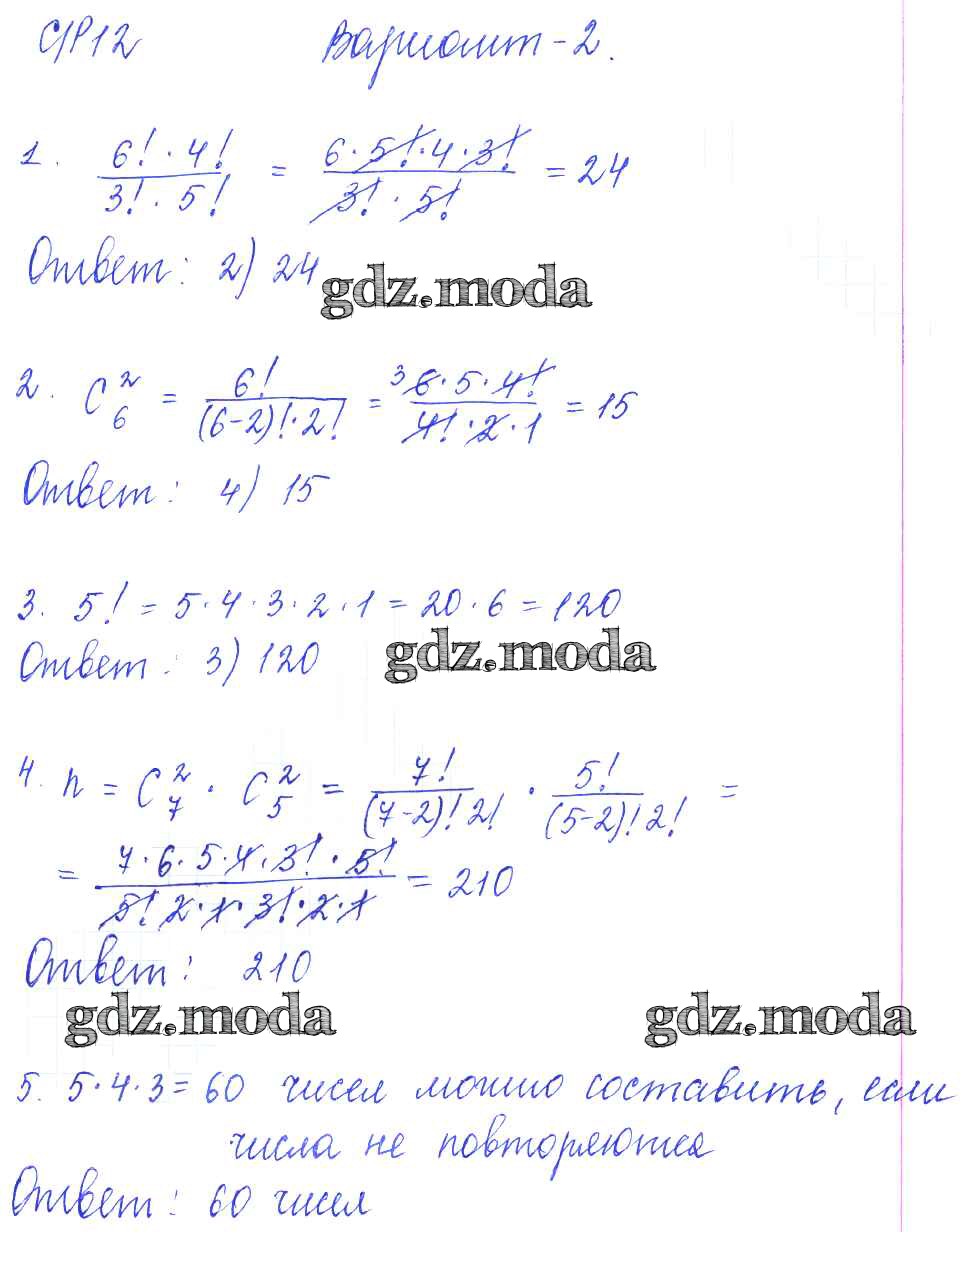 С/Р12 Вариант-2.
1. 6! · 4! / 3! · 5! = 6 · 5! · 4 · 3! / 3! · 5! = 24
Ответ: 2) 24
gdz.moda
2. C₆² = 6! / (6-2)! · 2! = ³ 6 · 5 · 4! / 4! · 2 · 1 = 15
Ответ: 4) 15
3. 5! = 5 · 4 · 3 · 2 · 1 = 20 · 6 = 120
Ответ: 3) 120
gdz.moda
4. n = C₇² · C₅² = 7! / (7-2)! 2! · 5! / (5-2)! 2! =
= 7 · 6 · 5 · 4 · 3! · 5! / 5! 2 · 1 · 3! · 2 · 1 = 210
Ответ: 210
gdz.moda gdz.moda
5. 5 · 4 · 3 = 60 чисел можно составить, если
числа не повторяются
Ответ: 60 чисел